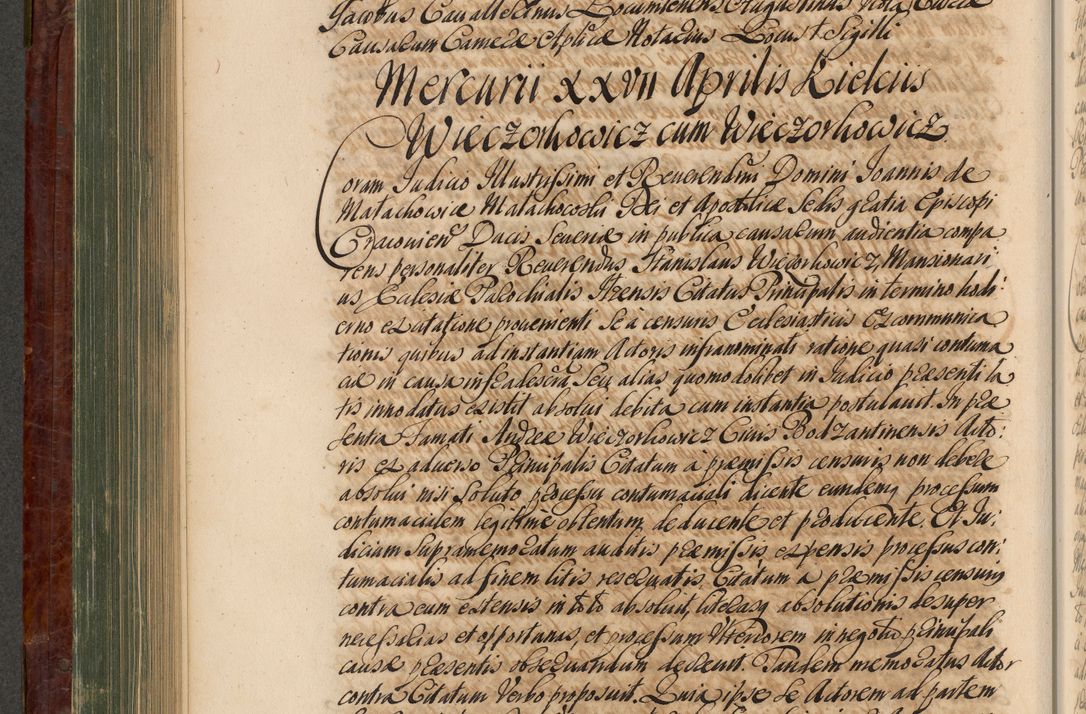 Jacobus Cavallerinus Locumtenens Augustinus Nota Curiæ
Causarum Cameræ Aplicæ Notarius Locus + Sigilli
Mercurii XXVII Aprilis Kielciis
Wieczorkowicz cum Wieczorkowicz.
Coram Judicio Illustrissimi et Reverendmi Domini Joannis de
Małachowice Małachowski Dei et Apostolicæ Sedis gratia Episcopi
Cracovien Ducis Severiæ in publica causarum audientia compa
rens personaliter Reverendus Stanislaus Wieczorkowicz, Mansionari:
us Ecclesiæ Parochialis Itzensis Citatus Principalis in termino hodi:
erno ex citatione provenienti se à censuris Ecclesiasticis Excommunica
tionis quibus ad instantiam Actoris infranominati ratione quasi contuma
ciæ in causa infrascta seu alias quomodolibet in Judicio præsenti la
tis innodatus existit absolvi debita cum instantia postulavit. In præ
sentia Famati Andreæ Wieczorkowicz Civis Bodzantinensis Acto:
ris ex adverso Principalis Citatum à præmissis censuris non debere
absolvi nisi soluto processu contumaciali dicente eundemq processum
contumacialem legitime obtentum deducente et producente. Et Ju:
dicium supramemoratum auditis præmissis expensis processus con:
tumacialis ad finem litis reservatis Citatum a præmissis censuris
contra eum extensis in toto absolvit, literasq absolutionis desuper
necessarias et opportunas, et processum ulteriorem in negotio principali
causæ præsentis observandum decrevit. Tandem memoratus Actor
contra Citatum verbo proposuit. Quia ipse se Actorem ad partem